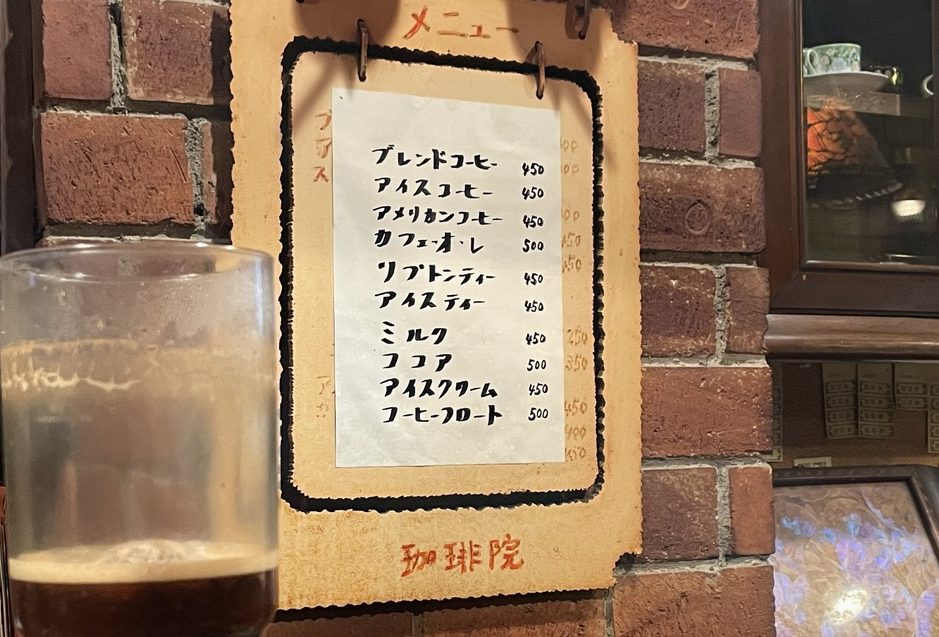 メニュー
ブレンドコーヒー 450
アイスコーヒー 450
アメリカンコーヒー 450
カフェ・オ・レ 500
リプトンティー 450
アイスティー 450
ミルク 450
ココア 500
アイスクリーム 450
コーヒーフロート 500
珈琲院